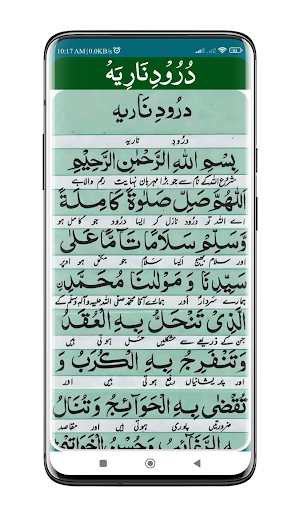 10:17 AM | 0.0KB/s
دُرُوْدِ نَارِیَهْ
درُودِ ناریه
درُودِ ناریه
بِسْمِ اللهِ الرَّحْمٰنِ الرَّحِيْمِ
شروع اللہ کے نام سے جو بڑا مہربان نہایت رحم والا ہے
اَللّٰهُمَّ صَلِّ صَلٰوةً كَامِلَةً
اے اللہ تو درُود نازل کر ایسا درُود جو کامل ہو
وَّسَلِّمْ سَلَامًا تَآمًّا عَلٰى
اور سلام بھیج ایسا سلام جو مکمل ہو اوپر
سَيِّدِنَا وَ مَوْلٰنَا مُحَمَّدِ
ہمارے سردار اور ہمارے آقا محمد صلی اللہ علیہ وآلہ وسلم کے
الَّذِىْ تَنْحَلُّ بِهِ الْعُقَدُ
جن کے ذریعے سے مشکلیں حل ہوتی ہیں
وَتَنْفَرِجُ بِهِ الْكُرَبُ وَ
اور پریشانیاں رفع ہوتی ہیں اور
تُقْضٰى بِهِ الْحَوَآئِجُ وَتُنَالُ
ضرورتیں پوری ہوتی ہیں اور مقاصد
بِهِ الرَّغَآئِبُ وَحُسْنُ الْخَوَاتِمِ